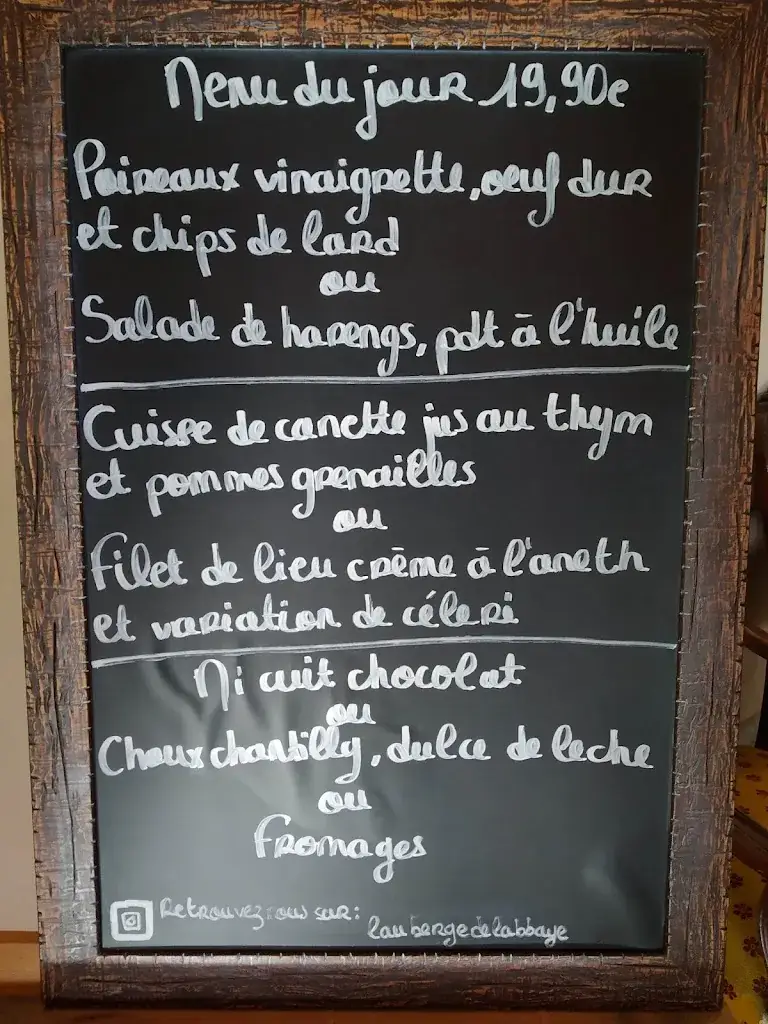 Menu du jour 19,90e
Poireaux vinaigrette, oeuf dur
et chips de lard
ou
Salade de harengs, pdt à l'huile
Cuisse de canette jus au thym
et pommes grenailles
ou
Filet de lieu crème à l'aneth
et variation de céleri
Mi cuit chocolat
ou
Choux chantilly, dulce de leche
ou
Fromages
Retrouvez nous sur:
laubergedelabbaye